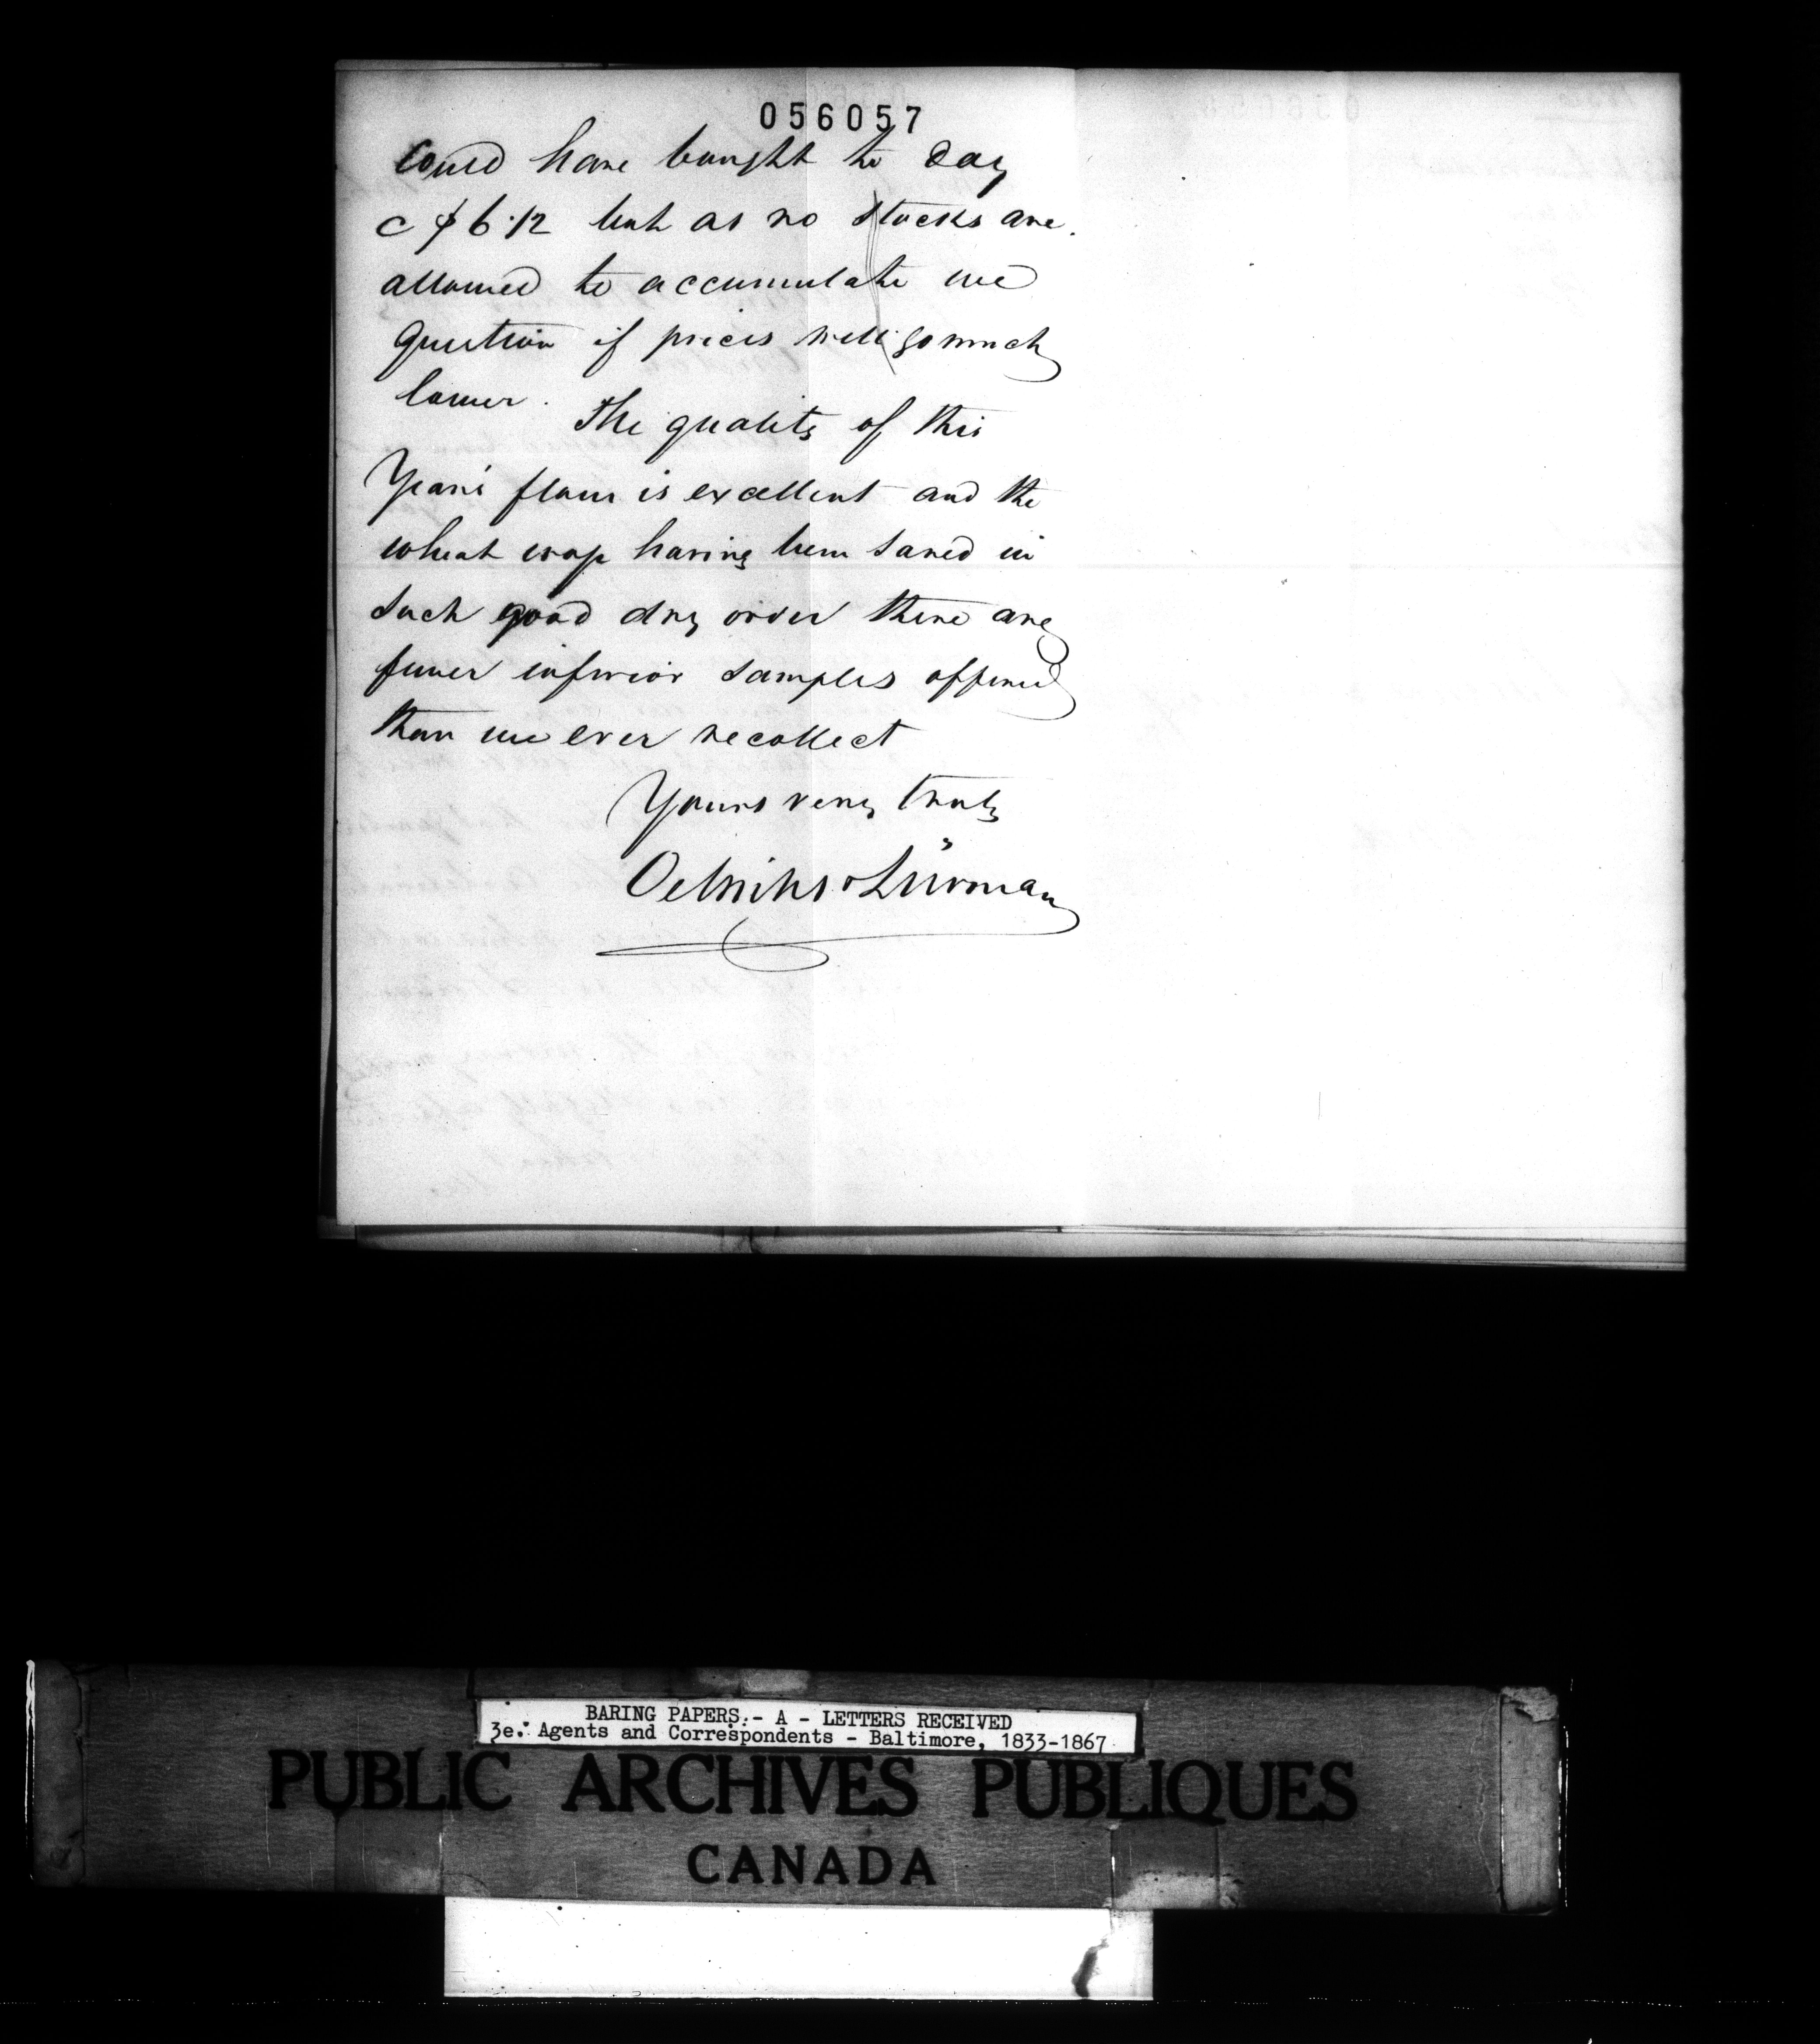 056057
could have bought to day
c $6.12 but as no stocks are
allowed to accumulate we
question if prices will go much
lower. The quality of this
Years flour is excellent and the
wheat crop having been saved in
such good dry order there are
fewer inferior samples offered
than we ever recollect
Yours very truly
Oelrichs & Lürman
BARING PAPERS.- A - LETTERS RECEIVED
3e. Agents and Correspondents - Baltimore, 1833-1867
PUBLIC ARCHIVES PUBLIQUES
CANADA